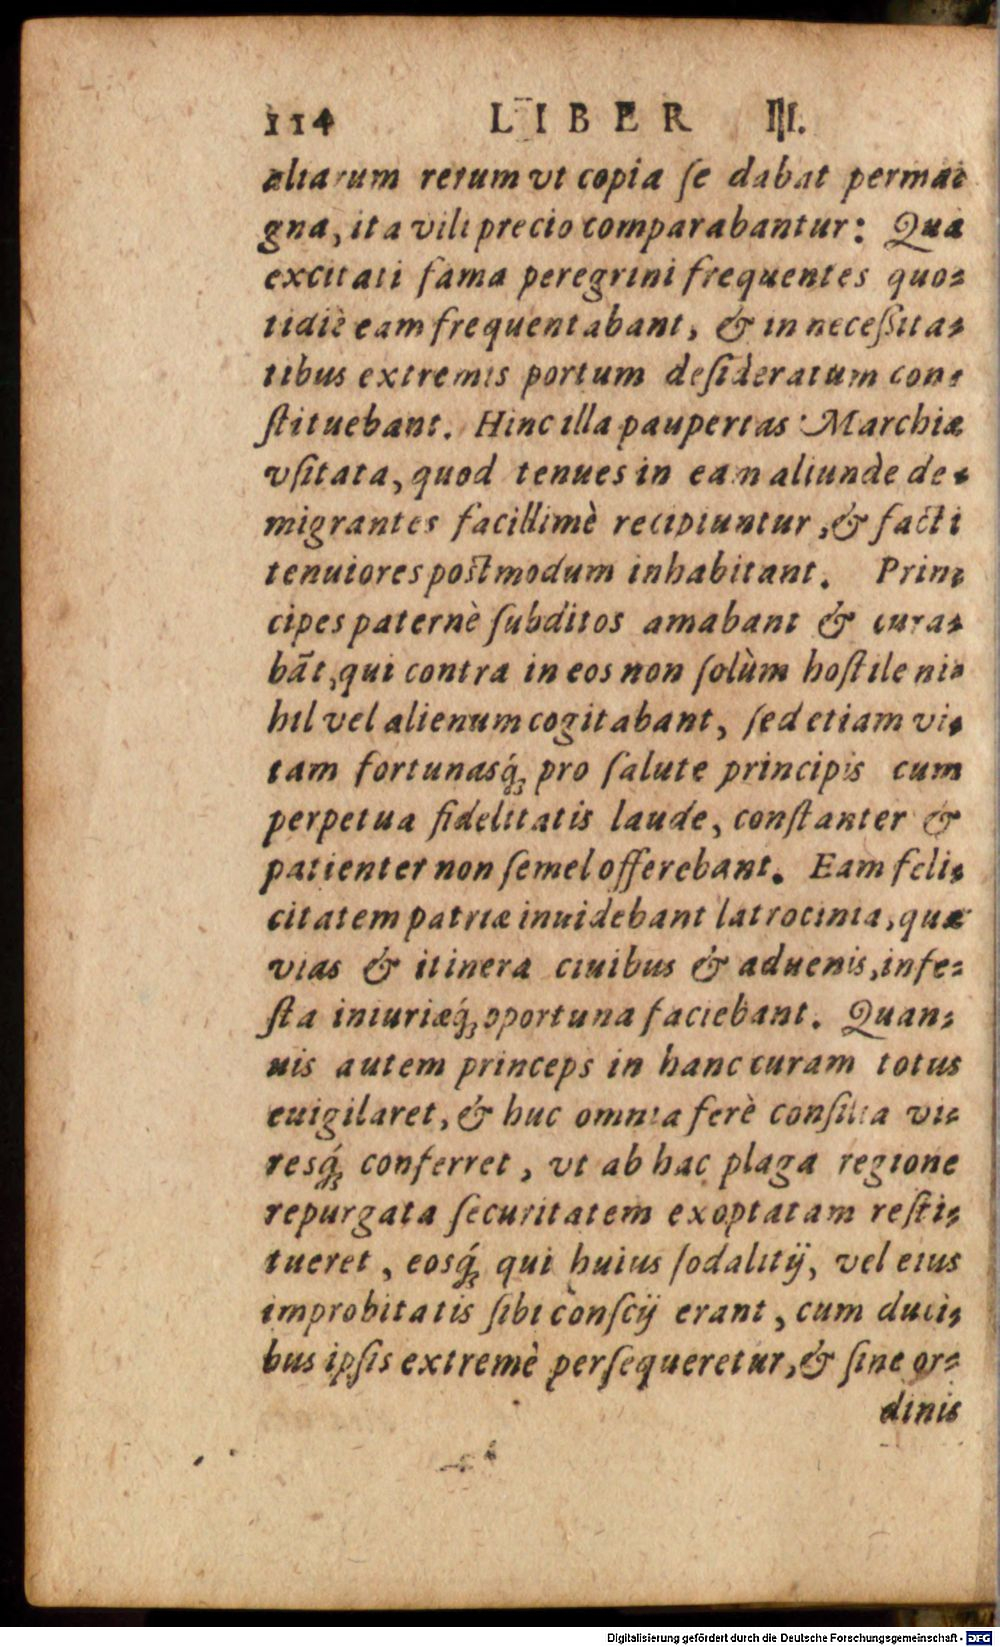 114 LIBER III.
aliarum rerum vt copia ſe dabat permai
gna, ita vili precio comparabantur: Qua
excitati fama peregrini frequentes quo⸗
tidiè eam frequentabant, & in neceßita⸗
tibus extremis portum deſideratum con⸗
ſtituebant. Hinc illa paupertas Marchiæ
vſitata, quod tenues in eam aliunde de⸗
migrantes facillimè recipiuntur, & facti
tenuiores poſtmodum inhabitant. Prin⸗
cipes paternè ſubditos amabant & cura⸗
bāt, qui contra in eos non ſolùm hoſtile ni⸗
hil vel alienum cogitabant, ſed etiam vi⸗
tam fortunasq́ꝫ pro ſalute principis cum
perpetua fidelitatis laude, conſtanter &
patienter non ſemel offerebant. Eam feli⸗
citatem patriæ inuidebant latrocinia, quæ
vias & itinera ciuibus & aduenis, infe⸗
ſta iniuriæq́ꝫ oportuna faciebant. Quan⸗
uis autem princeps in hanc curam totus
euigilaret, & huc omnia ferè conſilia vi⸗
resq́ꝫ conferret, vt ab hac plaga regione
repurgata ſecuritatem exoptatam reſti⸗
tueret, eosq́ꝫ qui huius ſodalitij, vel eius
improbitatis ſibi conſcij erant, cum duci⸗
bus ipſis extremè perſequeretur, & ſine or⸗
dinis
Digitalisierung gefördert durch die Deutsche Forschungsgemeinschaft - DFG